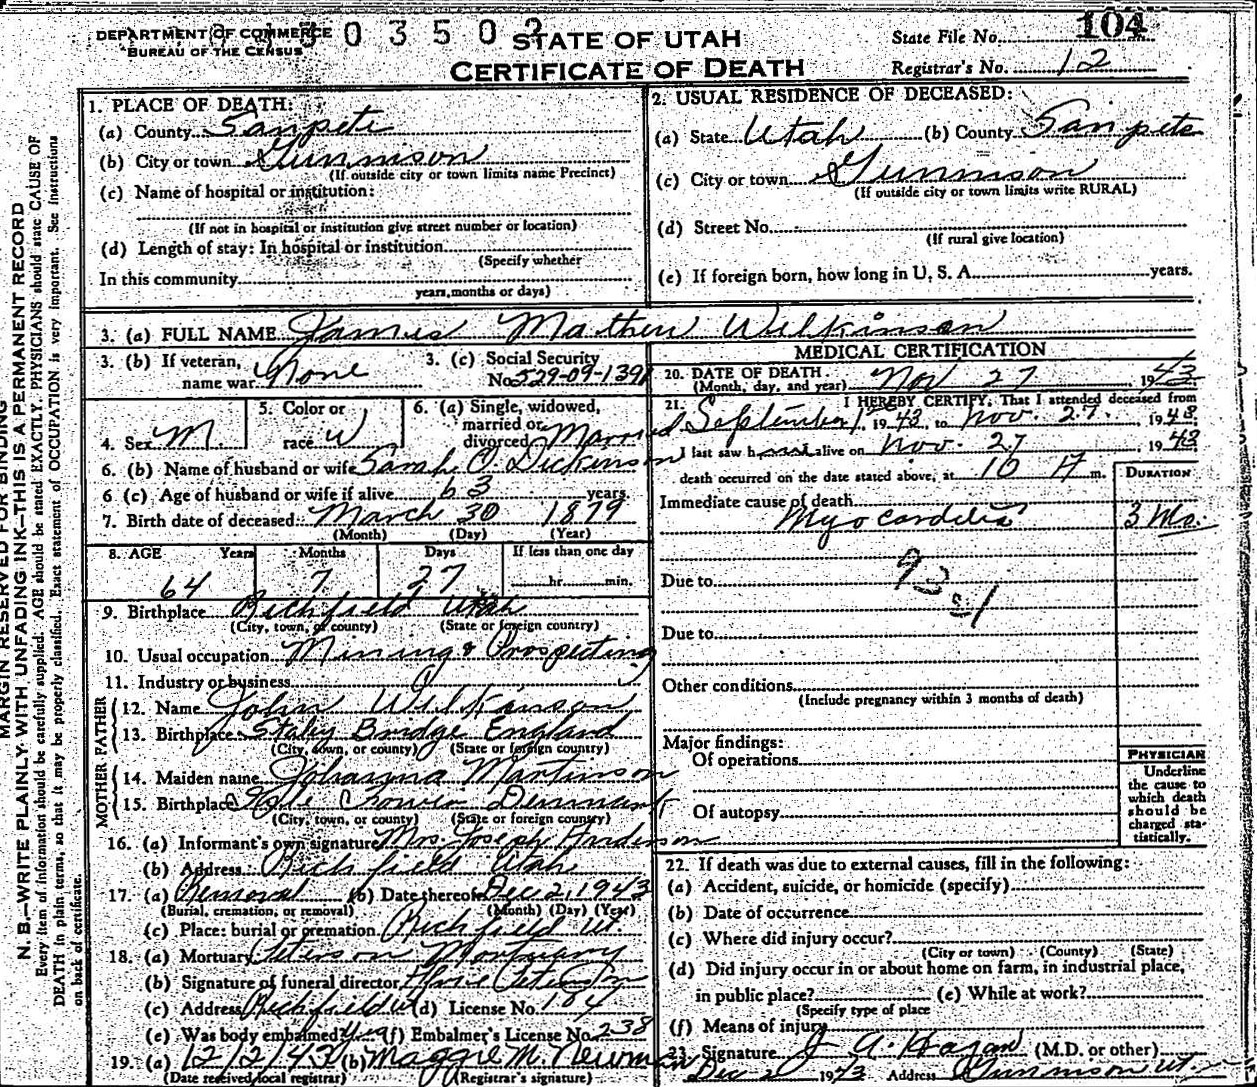 DEPARTMENT OF COMMERCE
BUREAU OF THE CENSUS
0 3 5 0 2
STATE OF UTAH
CERTIFICATE OF DEATH
State File No. 104
Registrar's No. 12
MARGIN RESERVED FOR BINDING
N. B.—WRITE PLAINLY WITH UNFADING INK—THIS IS A PERMANENT RECORD
Every item of information should be carefully supplied. AGE should be stated EXACTLY. PHYSICIANS should state CAUSE OF
DEATH in plain terms, so that it may be properly classified. Exact statement of OCCUPATION is very important. See instructions
on back of certificate.
1. PLACE OF DEATH:
(a) County Sanpete
(b) City or town Gunnison
(If outside city or town limits name Precinct)
(c) Name of hospital or institution:
(If not in hospital or institution give street number or location)
(d) Length of stay: In hospital or institution
(Specify whether
In this community
years, months or days)
2. USUAL RESIDENCE OF DECEASED:
(a) State Utah (b) County Sanpete
(c) City or town Gunnison
(If outside city or town limits write RURAL)
(d) Street No.
(If rural give location)
(e) If foreign born, how long in U. S. A. years.
3. (a) FULL NAME James Mathew Wilkinson
3. (b) If veteran, name war None
3. (c) Social Security No. 529-09-1391
4. Sex M.
5. Color or race W
6. (a) Single, widowed, married or divorced Married
6. (b) Name of husband or wife Sarah O. Dickinson
6 (c) Age of husband or wife if alive 63 years.
7. Birth date of deceased: March 30 1879
(Month) (Day) (Year)
8. AGE Years Months Days If less than one day
64 7 27 hr. min.
9. Birthplace Richfield Utah
(City, town, or county) (State or foreign country)
10. Usual occupation Mining & Prospecting
11. Industry or business
FATHER
12. Name John Wilkinson
13. Birthplace Staley Bridge England
(City, town, or county) (State or foreign country)
MOTHER
14. Maiden name Johanna Martinson
15. Birthplace Denmark
(City, town, or county) (State or foreign country)
16. (a) Informant's own signature Mrs. Joseph Anderson
(b) Address Richfield Utah
17. (a) Removal (b) Date thereof Dec 2, 1943
(Burial, cremation, or removal) (Month) (Day) (Year)
(c) Place: burial or cremation Richfield Ut.
18. (a) Mortuary Peterson Mortuary
(b) Signature of funeral director Peterson
(c) Address Richfield Ut (d) License No. 184
(e) Was body embalmed yes (f) Embalmer's License No. 238
19. (a) 12/2/43 (b) Maggie M. Newman
(Date received local registrar) (Registrar's signature)
MEDICAL CERTIFICATION
20. DATE OF DEATH
(Month, day, and year) Nov 27, 1943
21. I HEREBY CERTIFY, That I attended deceased from
September 1st 1943, to Nov. 27. 1943
I last saw him alive on Nov. 27, 1943
death occurred on the date stated above, at 10 m.
DURATION
Immediate cause of death
Myocarditis 3 Mo.
Due to
Due to
Other conditions
(Include pregnancy within 3 months of death)
Major findings:
Of operations
Of autopsy
PHYSICIAN
Underline
the cause to
which death
should be
charged sta-
tistically.
22. If death was due to external causes, fill in the following:
(a) Accident, suicide, or homicide (specify)
(b) Date of occurrence
(c) Where did injury occur?
(City or town) (County) (State)
(d) Did injury occur in or about home on farm, in industrial place,
in public place? (e) While at work?
(Specify type of place
(f) Means of injury
23. Signature J. A. Hagan (M.D. or other)
Dec 2 1943 Address Gunnison Ut.